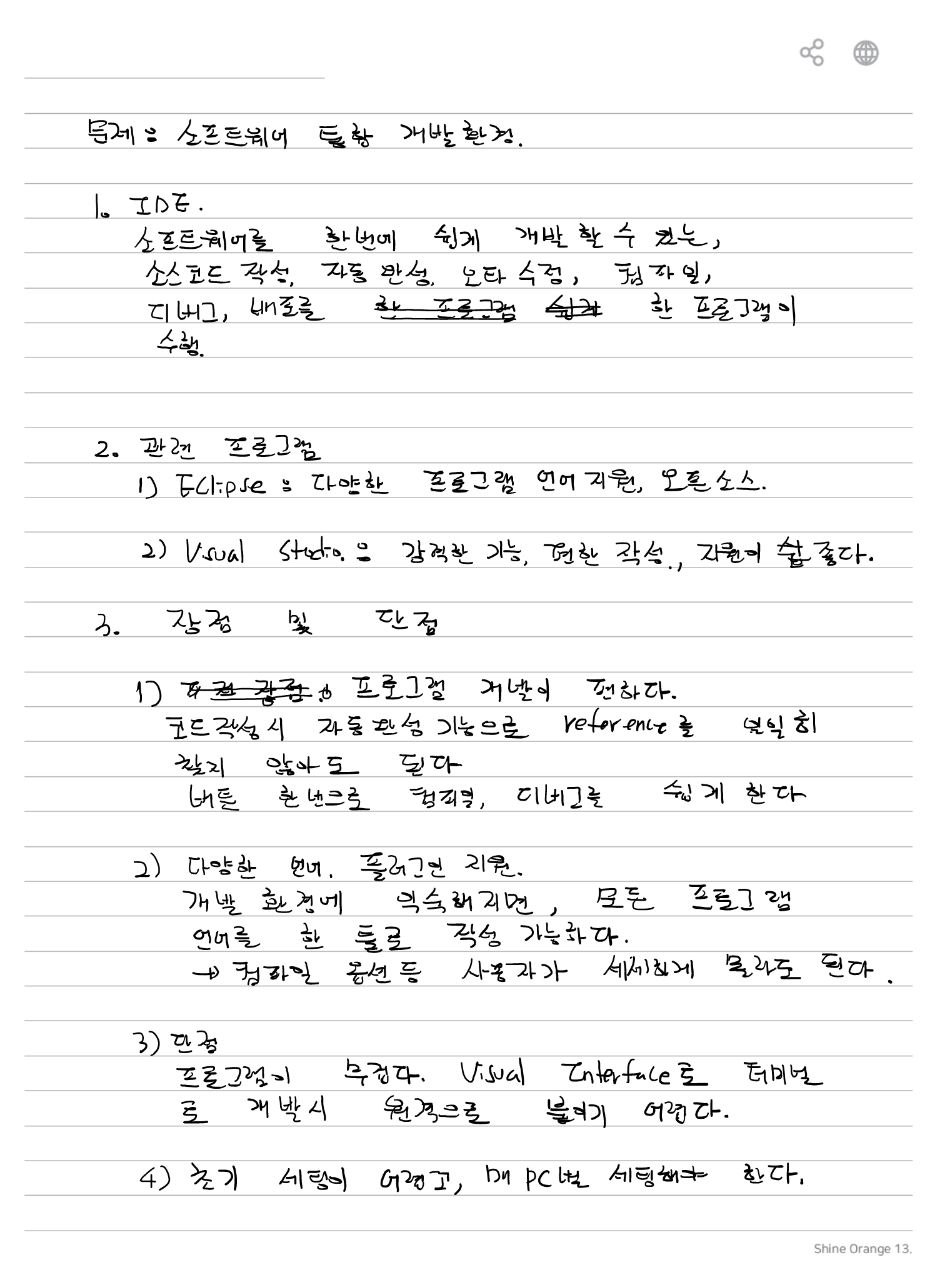 문제 : 소프트웨어 통합 개발환경.
1. IDE.
소프트웨어를 한번에 쉽게 개발 할 수 있는,
소스코드 작성, 자동 완성, 오타 수정, 컴파일,
디버그, 배포를 한 프로그램 쉽게 한 프로그램이
수행.
2. 관련 프로그램
1) Eclipse : 다양한 프로그램 언어 지원, 오픈소스.
2) Visual Studio : 강력한 기능, 편한 작성, 지원이 좋다.
3. 장점 및 단점
1) 장점 : 프로그램 개발이 편하다.
코드작성시 자동완성 기능으로 reference를 일일히
찾지 않아도 된다
버튼 한번으로 컴파일, 디버그를 쉽게 한다
2) 다양한 언어, 플러그인 지원.
개발 환경에 익숙해지면, 모든 프로그램
언어를 한 툴로 작성 가능하다.
→ 컴파일 옵션 등 사용자가 세세하게 몰라도 된다.
3) 단점
프로그램이 무겁다. Visual Interface로 터미널
로 개발시 원격으로 붙이기 어렵다.
4) 초기 세팅이 어렵고, 매 PC별 세팅해야 한다.
Shine Orange 13.